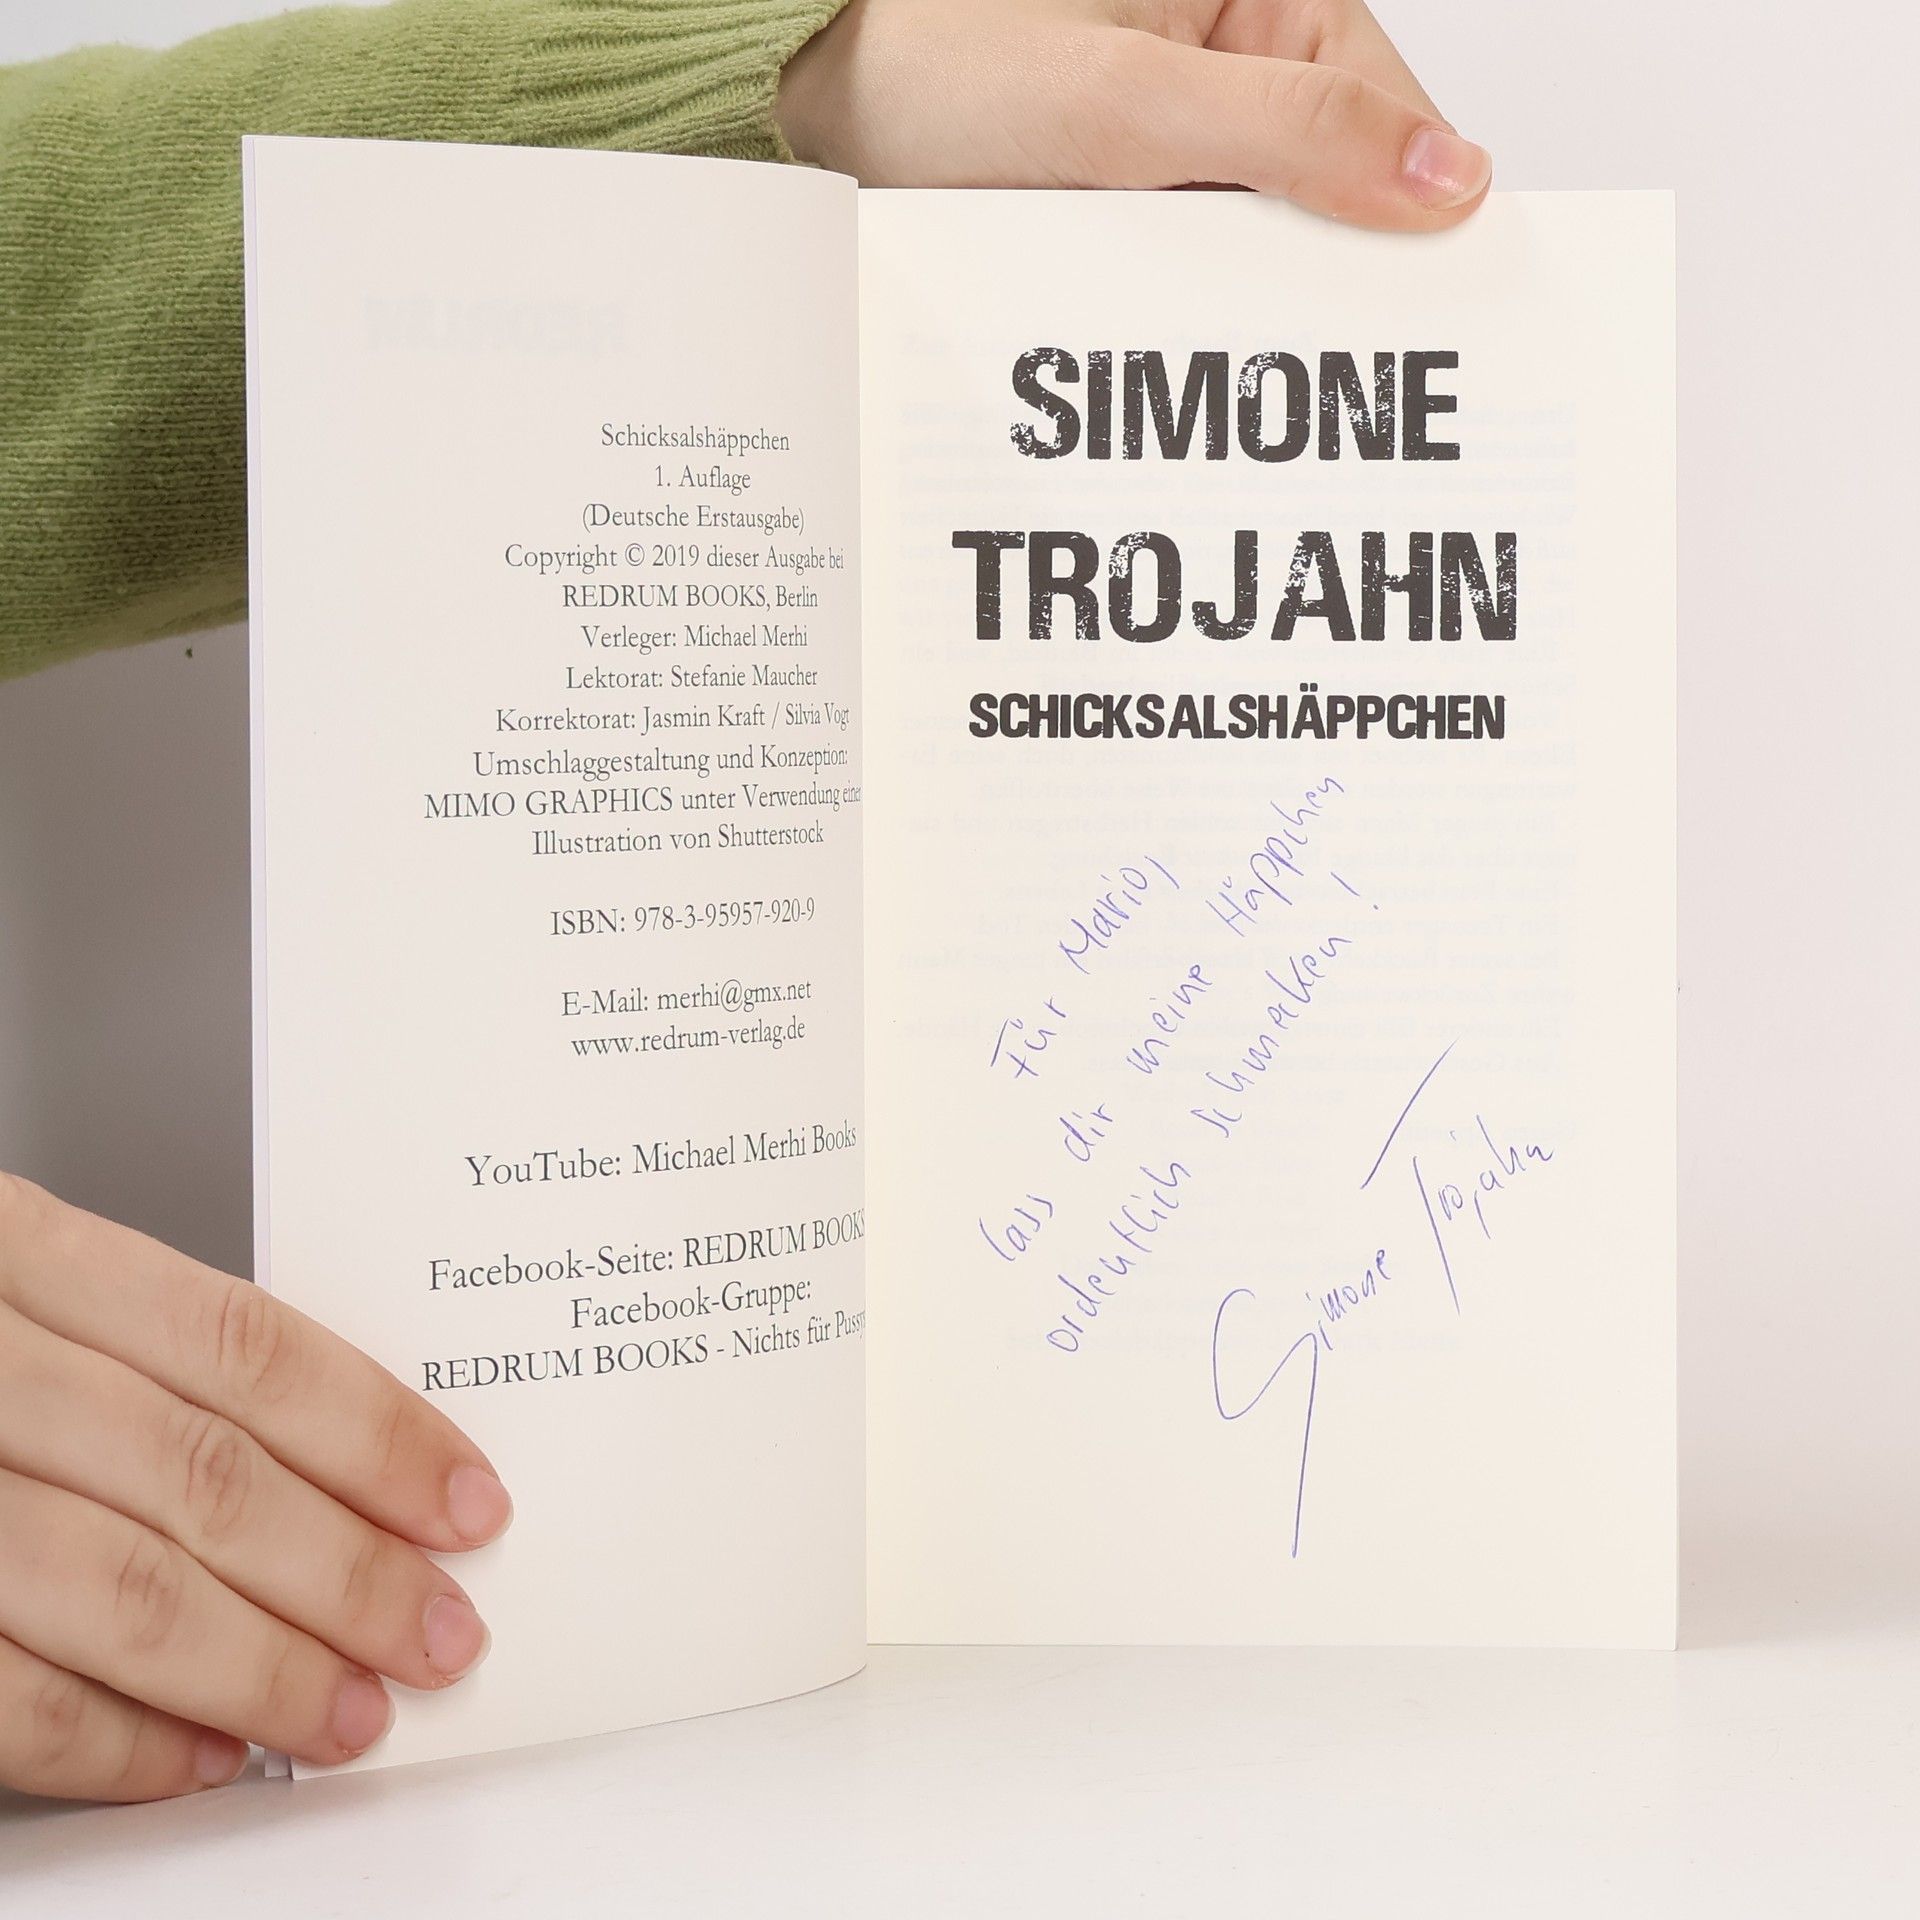 Schicksalshäppchen
1. Auflage
(Deutsche Erstausgabe)
Copyright © 2019 dieser Ausgabe bei
REDRUM BOOKS, Berlin
Verleger: Michael Merhi
Lektorat: Stefanie Maucher
Korrektorat: Jasmin Kraft / Silvia Vogt
Umschlaggestaltung und Konzeption:
MIMO GRAPHICS unter Verwendung einer
Illustration von Shutterstock
ISBN: 978-3-95957-920-9
E-Mail: merhi@gmx.net
www.redrum-verlag.de
YouTube: Michael Merhi Books
Facebook-Seite: REDRUM BOOKS
Facebook-Gruppe:
REDRUM BOOKS - Nichts für
SIMONE
TROJAHN
SCHICKSALSHÄPPCHEN
Für Mario,
lass dir meine Häppchen
ordentlich schmecken!
Simone Trojahn